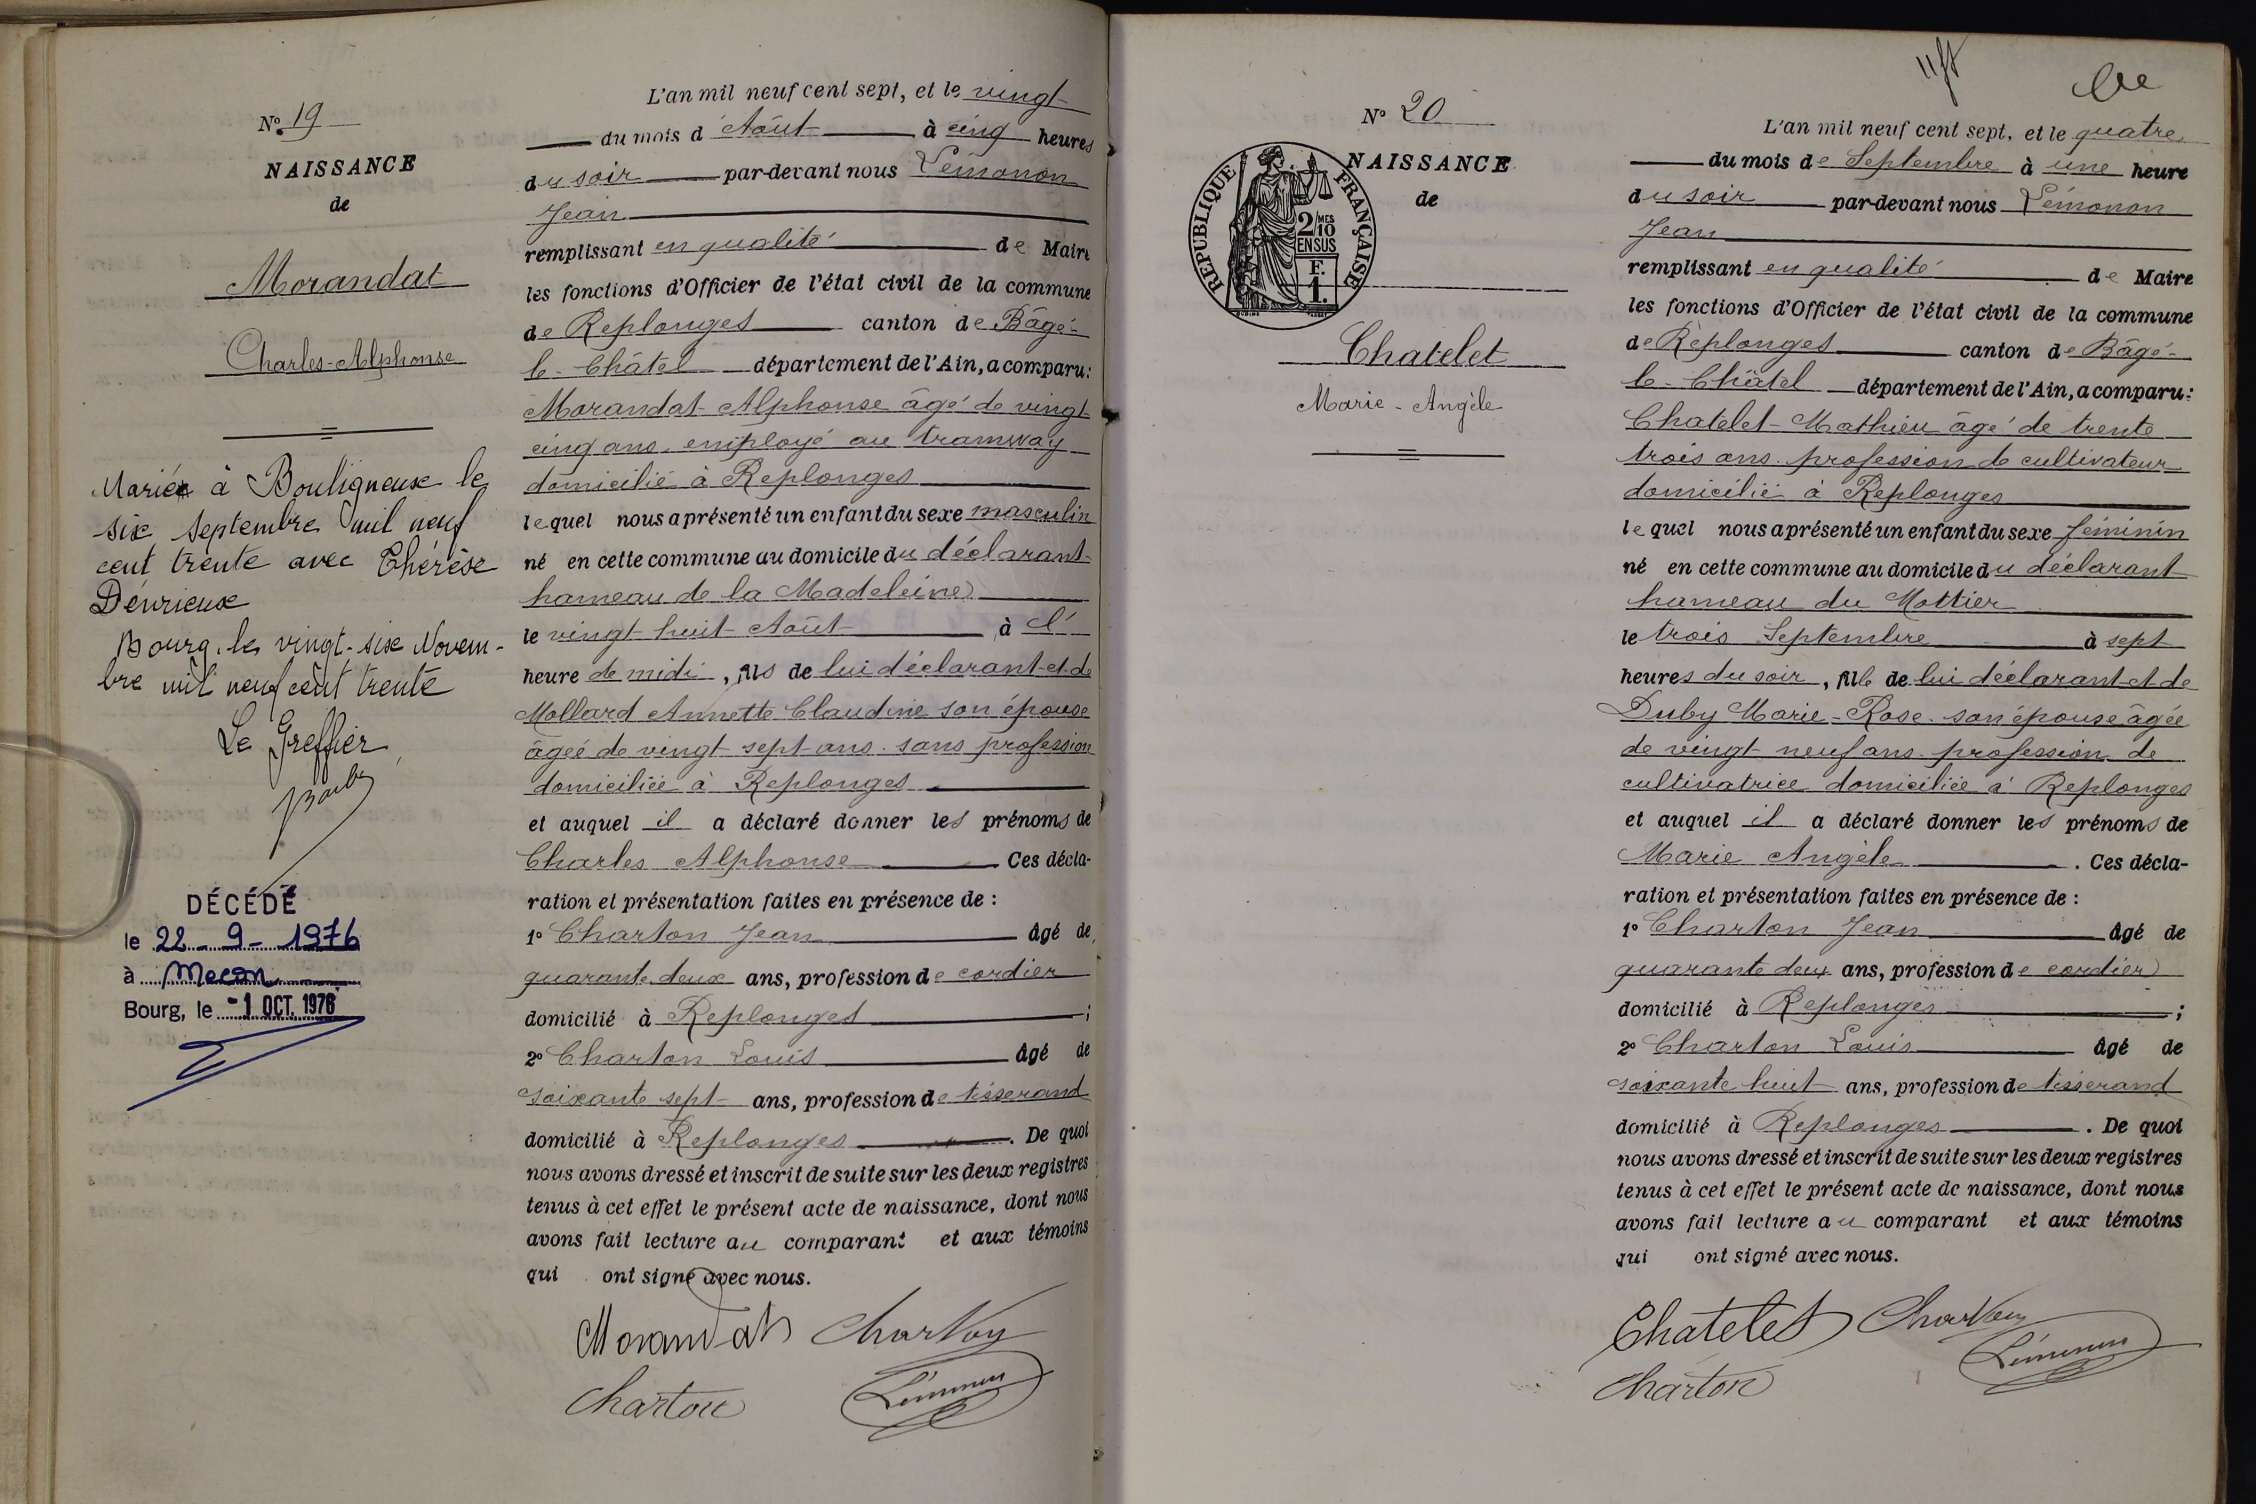 N° 19
NAISSANCE
de
Morandat
Charles-Alphonse
Marié à Bouligneux le
six septembre mil neuf
cent trente avec Thérèse
Dévrieux
Bourg, le vingt-six Novem-
bre mil neuf cent trente
Le Greffier
DÉCÉDÉ
le 22-9-1976
à Mecon
Bourg, le -1 OCT. 1976
L'an mil neuf cent sept, et le vingt
du mois d'Août à cinq heures
du soir par-devant nous Lémonon
Jean
remplissant en qualité de Maire
les fonctions d'Officier de l'état civil de la commune
de Replonges canton de Bâgé-
le-Châtel département de l'Ain, a comparu:
Morandat Alphonse âgé de vingt
cinq ans, employé au tramway
domicilié à Replonges
lequel nous a présenté un enfant du sexe masculin
né en cette commune au domicile du déclarant
hameau de la Madeleine
le vingt huit Août à l'
heure de midi, fils de lui déclarant et de
Mollard Annette Claudine son épouse
âgée de vingt sept ans sans profession
domiciliée à Replonges
et auquel il a déclaré donner les prénoms de
Charles Alphonse Ces décla-
ration et présentation faites en présence de :
1° Charton Jean âgé de
quarante deux ans, profession de cordier
domicilié à Replonges ;
2° Charton Louis âgé de
soixante sept ans, profession de tisserand
domicilié à Replonges. De quoi
nous avons dressé et inscrit de suite sur les deux registres
tenus à cet effet le présent acte de naissance, dont nous
avons fait lecture au comparant et aux témoins
qui ont signé avec nous.
Morandat Charton
Charton Lémonon
N° 20
NAISSANCE
de
RÉPUBLIQUE FRANÇAISE
2/MES
10
EN SUS
F.
1.
Chatelet
Marie-Angèle
L'an mil neuf cent sept, et le quatre
du mois de Septembre à une heure
du soir par-devant nous Lémonon
Jean
remplissant en qualité de Maire
les fonctions d'Officier de l'état civil de la commune
de Replonges canton de Bâgé-
le-Châtel département de l'Ain, a comparu:
Chatelet Mathieu âgé de trente
trois ans profession de cultivateur
domicilié à Replonges
lequel nous a présenté un enfant du sexe féminin
né en cette commune au domicile du déclarant
hameau du Mottier
le trois Septembre à sept
heures du soir, fille de lui déclarant et de
Duby Marie-Rose son épouse âgée
de vingt neuf ans profession de
cultivatrice domiciliée à Replonges
et auquel il a déclaré donner les prénoms de
Marie Angèle. Ces décla-
ration et présentation faites en présence de :
1° Charton Jean âgé de
quarante deux ans, profession de cordier
domicilié à Replonges ;
2° Charton Louis âgé de
soixante huit ans, profession de tisserand
domicilié à Replonges. De quoi
nous avons dressé et inscrit de suite sur les deux registres
tenus à cet effet le présent acte de naissance, dont nous
avons fait lecture au comparant et aux témoins
qui ont signé avec nous.
Chatelet Charton
Lémonon
Charton